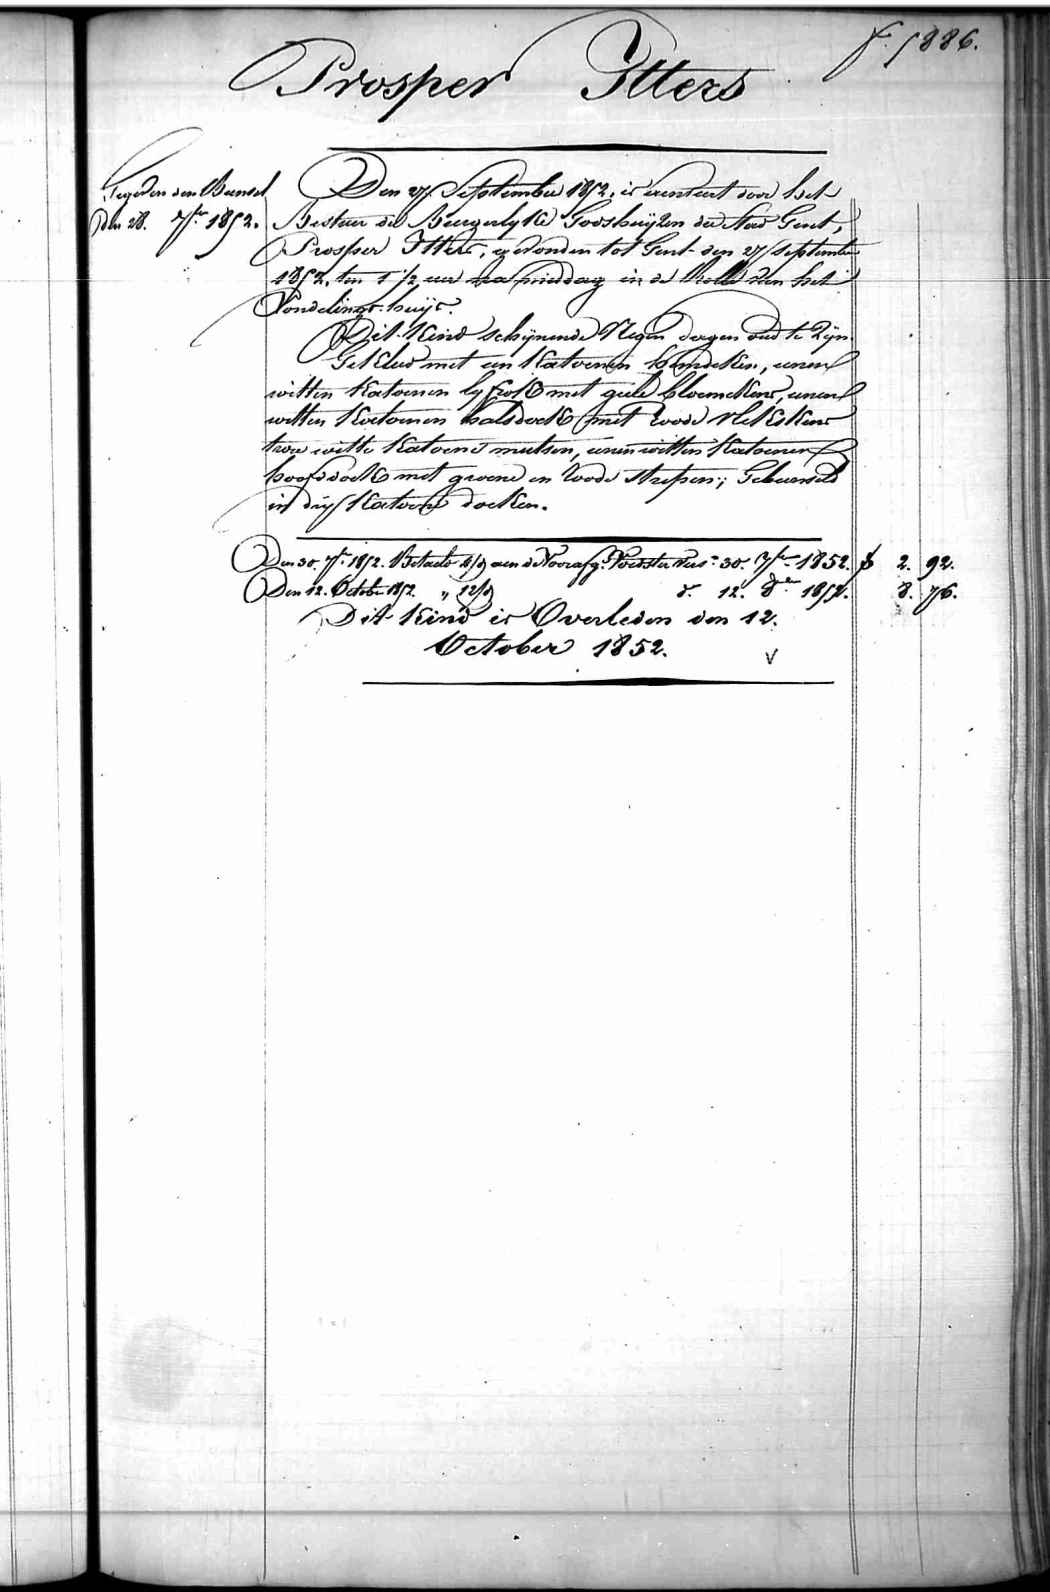 f. 5886.
Prosper Itters
Gegeven den Bunsel
den 28. 7ber 1852.
Den 27 September 1852. is aenveert door het
Bestuer der Burgerlyke Godshuijzen der Stad Gent,
Prosper Itters, gevonden tot Gent den 27 september
1852, ten 1 1/2 uer na middag in de Rolle van het
Vondelings-huijs.
Dit Kind schijnende Negen dagen oud te Zijn.
Gekleed met een Katoenen hemdeken, eenen
witten Katoenen lyfrok met geele bloemekens, eenen
witten Katoenen halsdoek met roode vlekskens
twee witte Katoene mutsen, eenen witten Katoenen
hoofddoek met groene en roode strepen; Gebunseld
in drij Katoene doeken.
Den 30. 7ber 1852. Betaeld aen de Voorafg. Voedster 30. 7ber 1852. f 2. 92.
Den 12. October 1852. " 12/d d. 12. 8er 1852. 8. 76.
Dit Kind is Overleden den 12.
October 1852. V